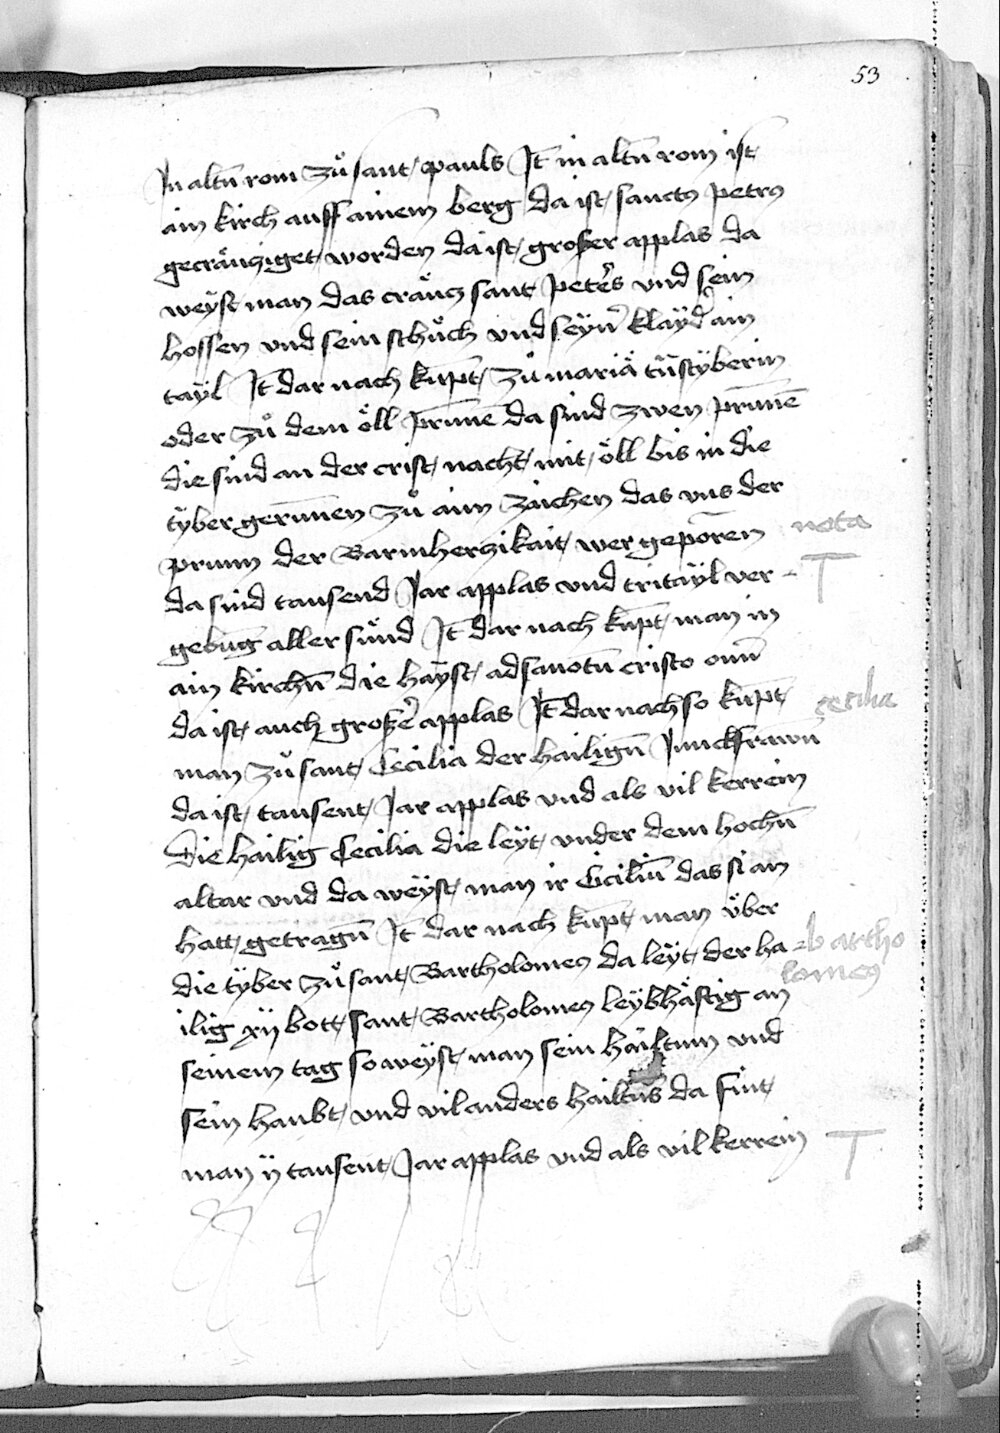 53
In altn̄ rom zů sant pauls It̄ in altn̄ rom ist
ain kirch auff ainem berg da ist sanctus petrus
gecräucziget worden da ist großer applas da
weyst man das cräucz sant peters vnd sein
hossen vnd sein schůch vnd seyner klayd ain
tayl It̄ dar nach kupt̄ zů mariä
oder zů dem öll prūnē da sind zwen prūnē
die sind an der crist nacht mit öll bis in die
tyber gerūnen zů aim zaichen das vns der
prunn der Barmherczikait wer geporen
da sind tausend Jar applas vnd tritayl ver-
gebūg aller sünd It̄ dar nach kūpt man in
ain kirchn̄ die hayst ad sanctū cristo
da ist auch großer applas It̄ dar nach so kūpt
man zů sant Cecilia der hailign̄ Junckfrawn̄
da ist tausent Jar applas vnd als vil kerrein
Die hailig Cecilia die leyt vnder dem hochn̄
altar vnd da weyst man ir Ciciliū das si an
hatt getragn̄ It̄ dar nach kūpt man über
die tyber zů sant Bartholomeus da leyt der ha-
ilig xij bott sant Bartholomeus leybhäftig an
seinem tag so weyst man sein hailtum vnd
sein haubt vnd vil anders hailtūs da fint
man ij tausent Jar applas vnd als vil kerrein
nota
cecilia
bartho
lomeus